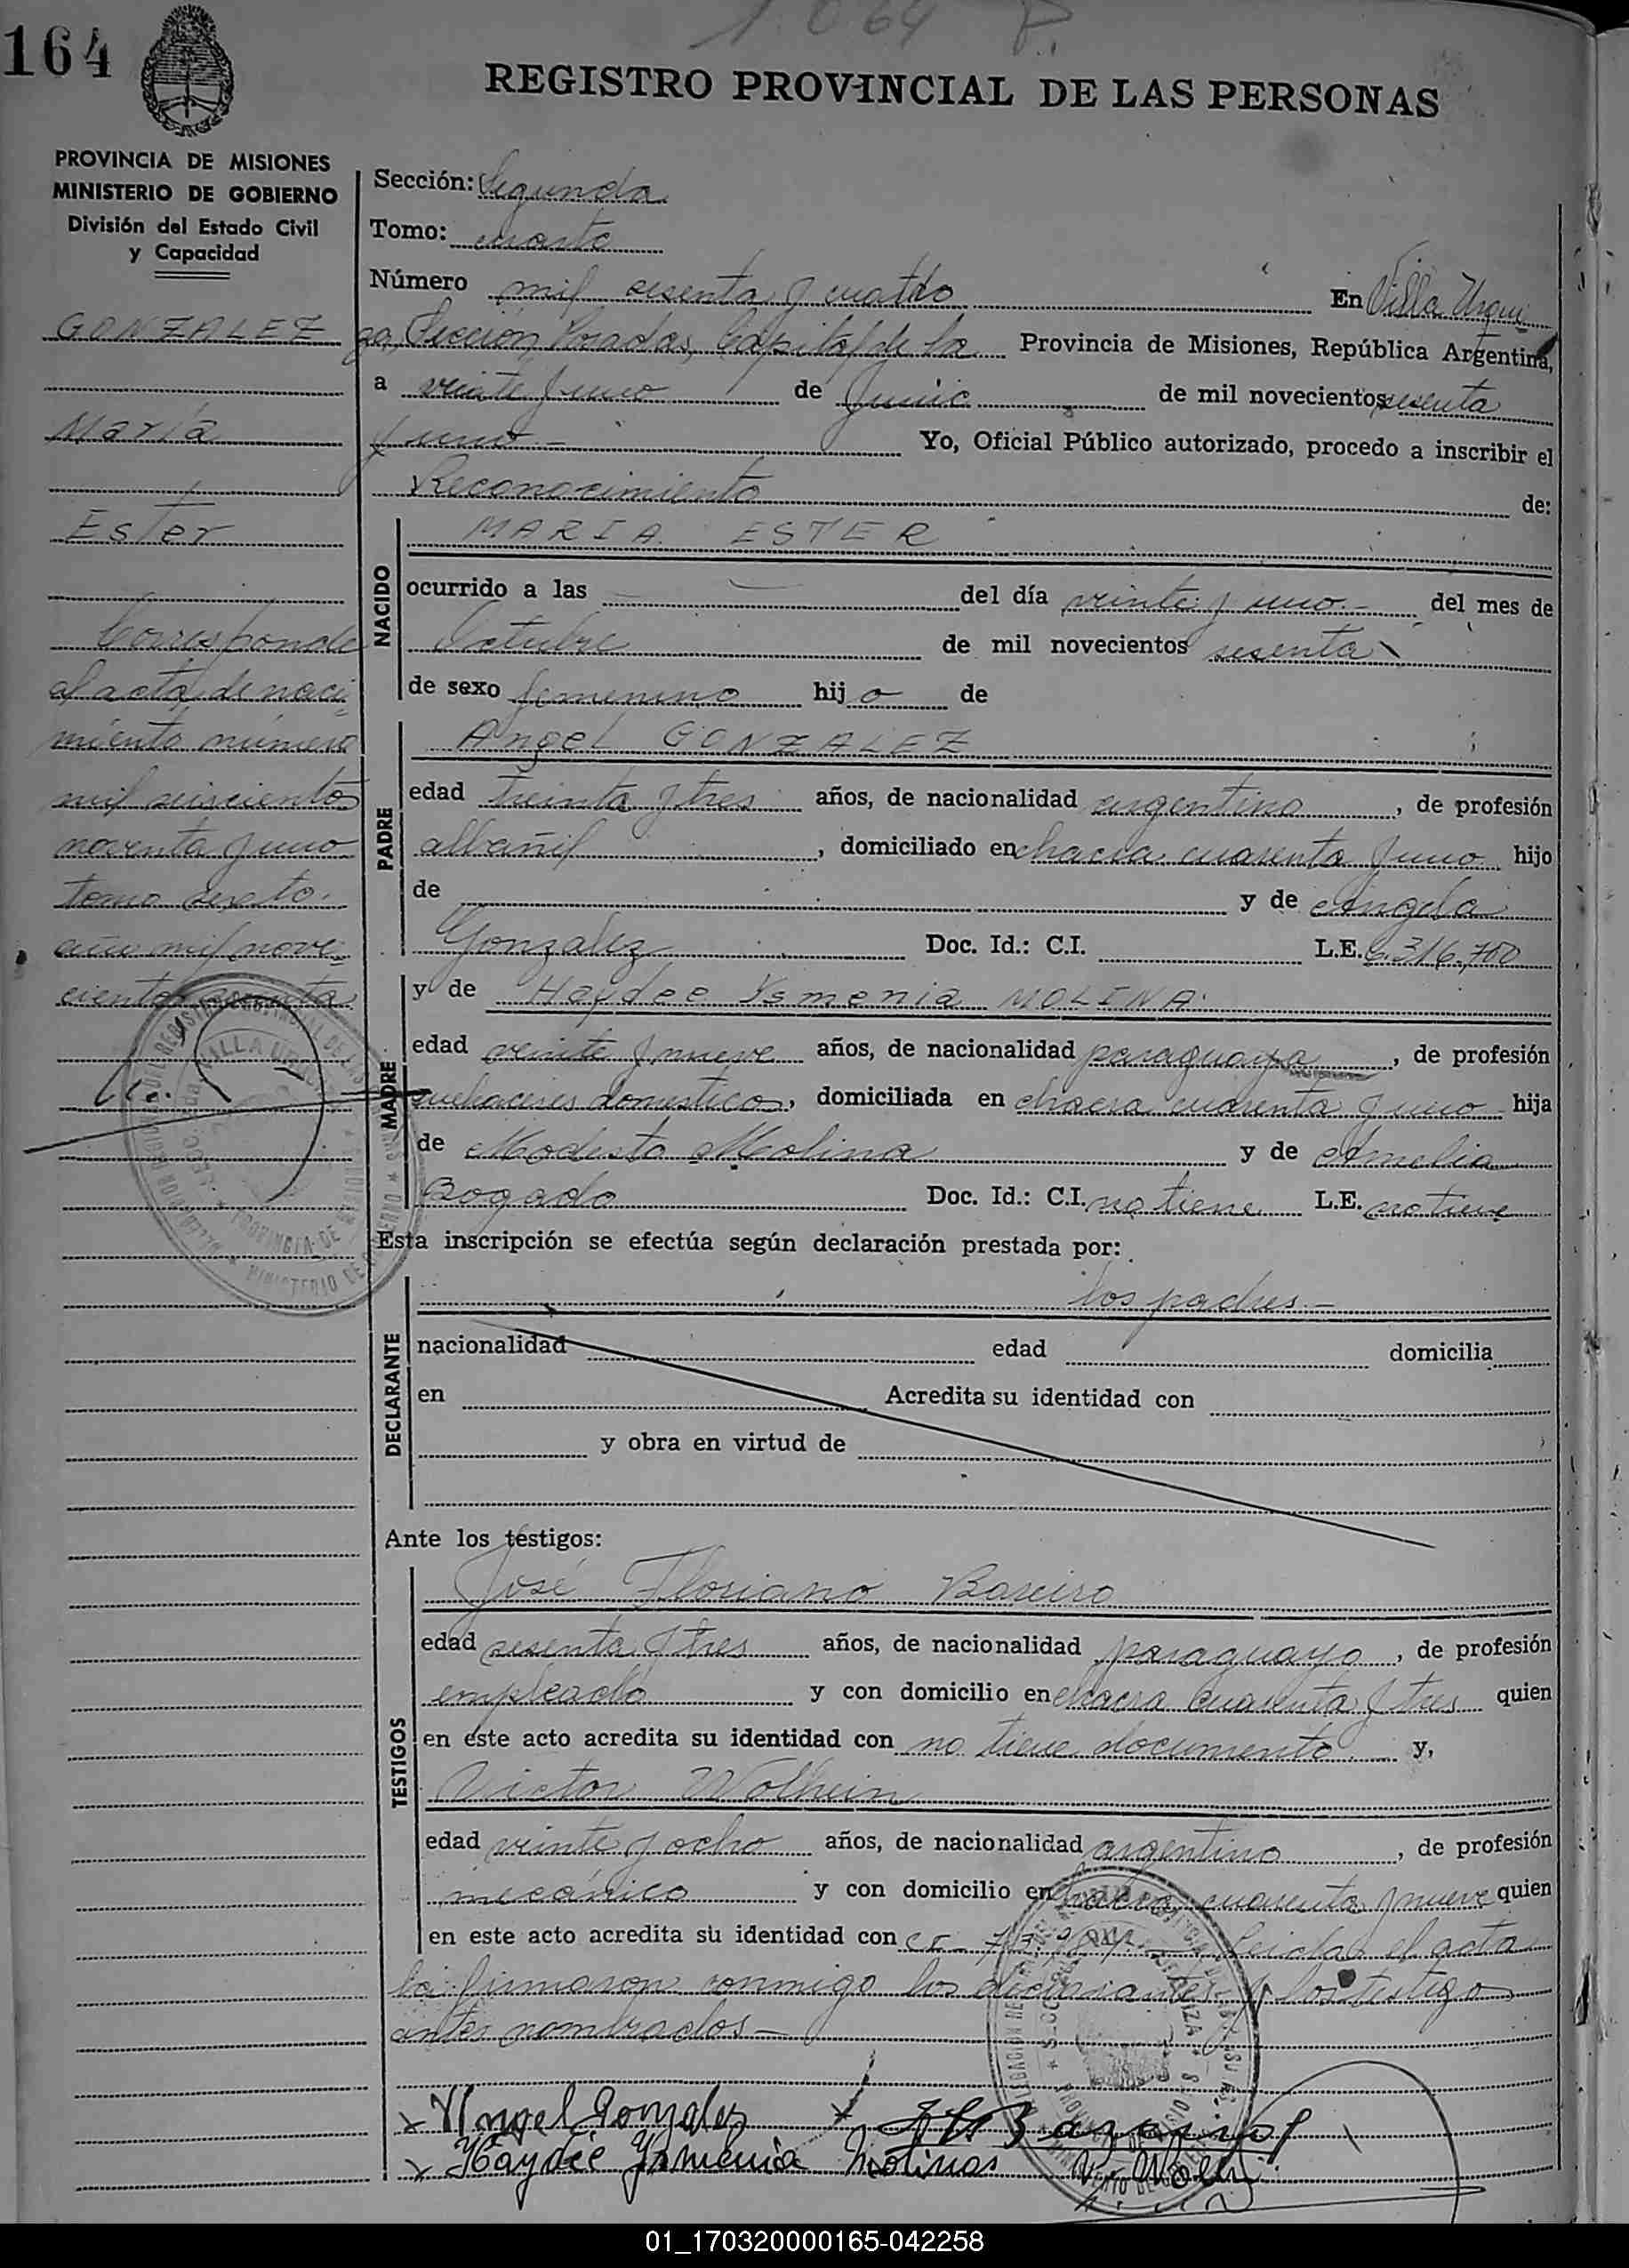 164
1064 P.
REGISTRO PROVINCIAL DE LAS PERSONAS
PROVINCIA DE MISIONES
MINISTERIO DE GOBIERNO
División del Estado Civil
y Capacidad
GONZALEZ
María
Ester
Corresponde
al acta de naci-
miento número
mil seiscientos
noventa y uno
tomo sexto.
año mil nove-
cientos sesenta
Sección: Segunda
Tomo: cuarto
Número mil sesenta y cuatro En Villa Urqui
za, Sección, Posadas, Capital de la Provincia de Misiones, República Argentina,
a veinte y uno de Junio de mil novecientos sesenta
y uno.- Yo, Oficial Público autorizado, procedo a inscribir el
Reconocimiento de:
NACIDO
MARIA ESTER
ocurrido a las — del día veinte y uno.- del mes de
Octubre de mil novecientos sesenta
de sexo femenino hijo de
PADRE
Angel GONZALEZ
edad treinta y tres años, de nacionalidad argentino, de profesión
albañil, domiciliado en chacra cuarenta y uno hijo
de y de Angela
Gonzalez Doc. Id.: C.I. L.E. 6.316.700
MADRE
y de Haydee Ysmenia MOLINA.
edad veinte y nueve años, de nacionalidad paraguaya, de profesión
quehaceres domesticos, domiciliada en chacra cuarenta y uno hija
de Modesto Molina y de Amelia
Bogado Doc. Id.: C.I. no tiene L.E. no tiene
Esta inscripción se efectúa según declaración prestada por:
DECLARANTE
los padres.-
nacionalidad edad domicilia
en Acredita su identidad con
y obra en virtud de
Ante los testigos:
TESTIGOS
José Floriano Bareiro
edad sesenta y tres años, de nacionalidad paraguayo, de profesión
empleado y con domicilio en chacra cuarenta y tres quien
en este acto acredita su identidad con no tiene documento y,
Victor Wolhein
edad veinte y ocho años, de nacionalidad argentino, de profesión
mecánico y con domicilio en chacra cuarenta y nueve quien
en este acto acredita su identidad con Leida el acta
la firmaron conmigo los declarantes y los testigo
antes nombrados.-
x Angel Gonzalez
x Haydée Ysmenia Molinas
01_170320000165-042258